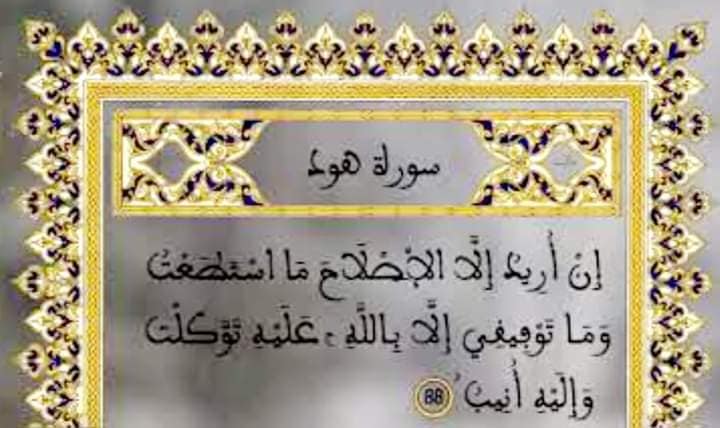 سورة هود
إِنْ أُرِيدُ إِلَّا الْإِصْلَاحَ مَا اسْتَطَعْتُ
وَمَا تَوْفِيقِي إِلَّا بِاللَّهِ عَلَيْهِ تَوَكَّلْتُ
وَإِلَيْهِ أُنِيبُ 88